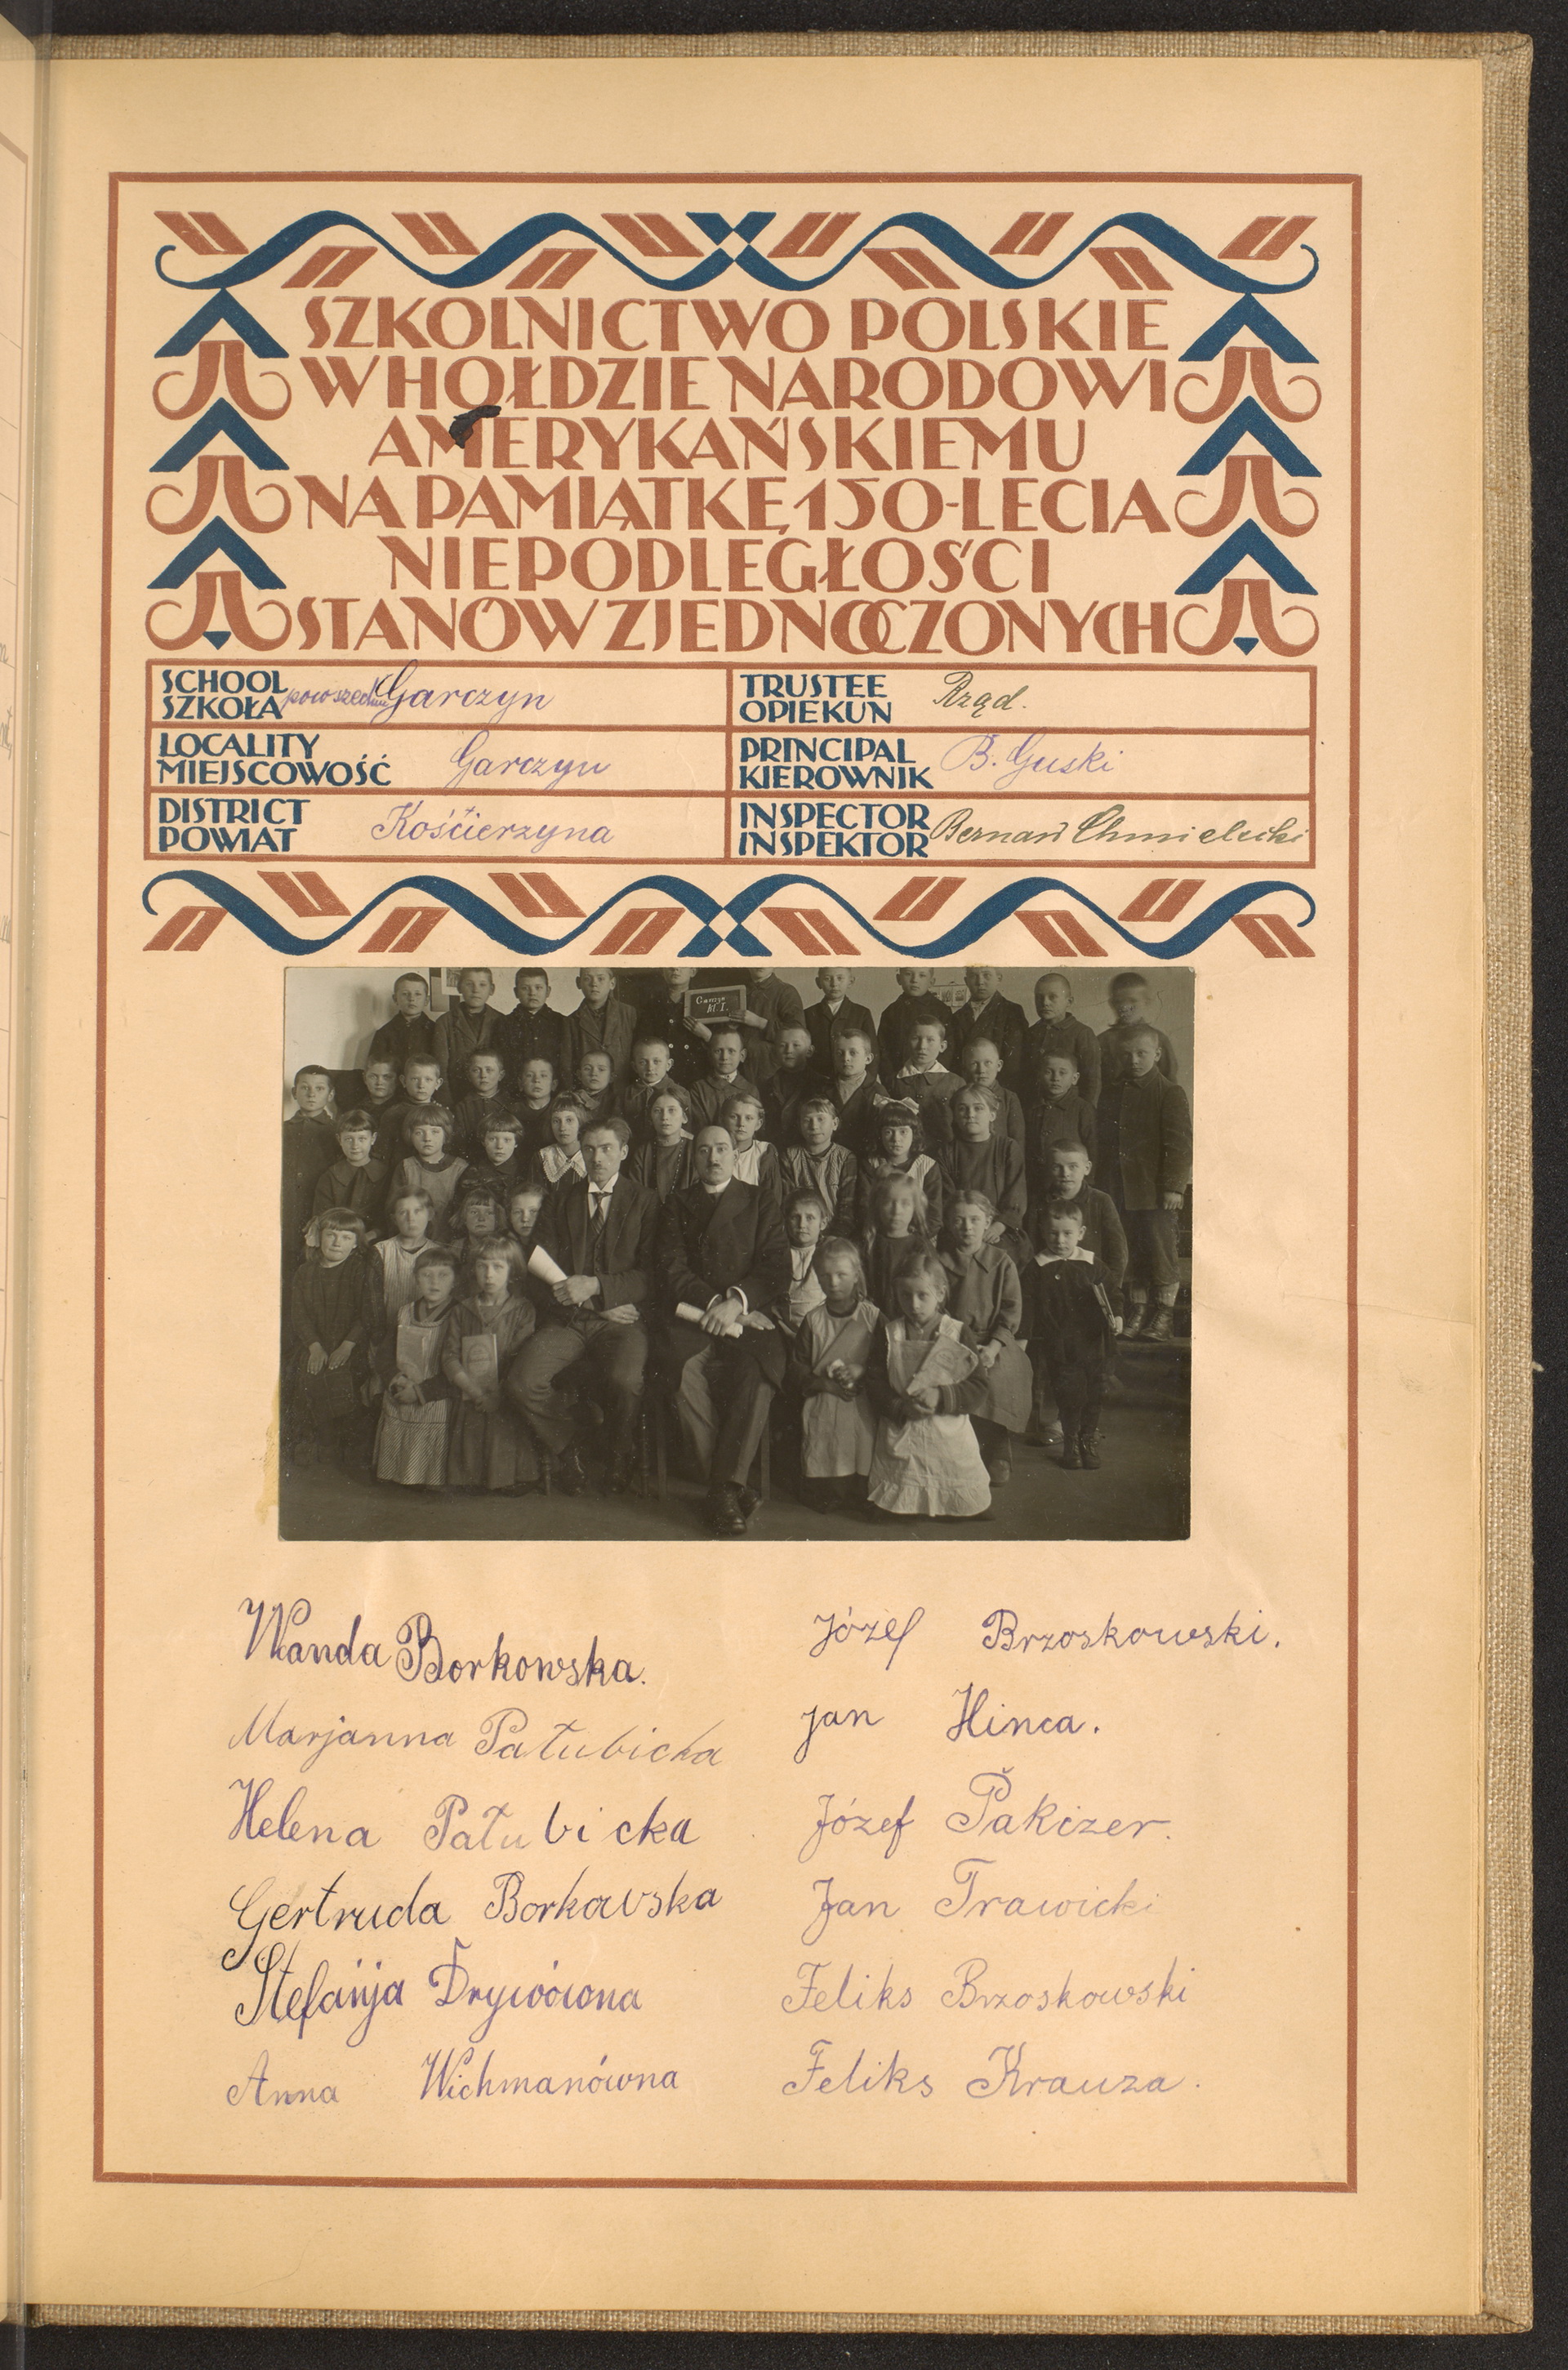 SZKOLNICTWO POLSKIE
W HOŁDZIE NARODOWI
AMERYKAŃSKIEMU
NA PAMIĄTKĘ 150-LECIA
NIEPODLEGŁOŚCI
STANÓW ZJEDNOCZONYCH
SCHOOL
SZKOŁA powszechna Garczyn
TRUSTEE
OPIEKUN Rząd.
LOCALITY
MIEJSCOWOŚĆ Garczyn
PRINCIPAL
KIEROWNIK B. Guski
DISTRICT
POWIAT Kościerzyna
INSPECTOR
INSPEKTOR Bernard Chmielecki
Garczyn
Kl. I.
Wanda Borkowska.
Marjanna Pałubicka
Helena Pałubicka
Gertruda Borkowska
Stefanja
Anna Wichmanówna
Józef Brzoskowski.
Jan Hinca.
Józef Pakizer.
Jan Trawicki
Feliks Brzoskowski
Feliks Krauza.